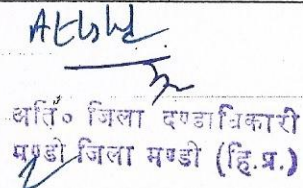 अति॰ जिला दण्डाधिकारी
मण्डी जिला मण्डी (हि.प्र.)